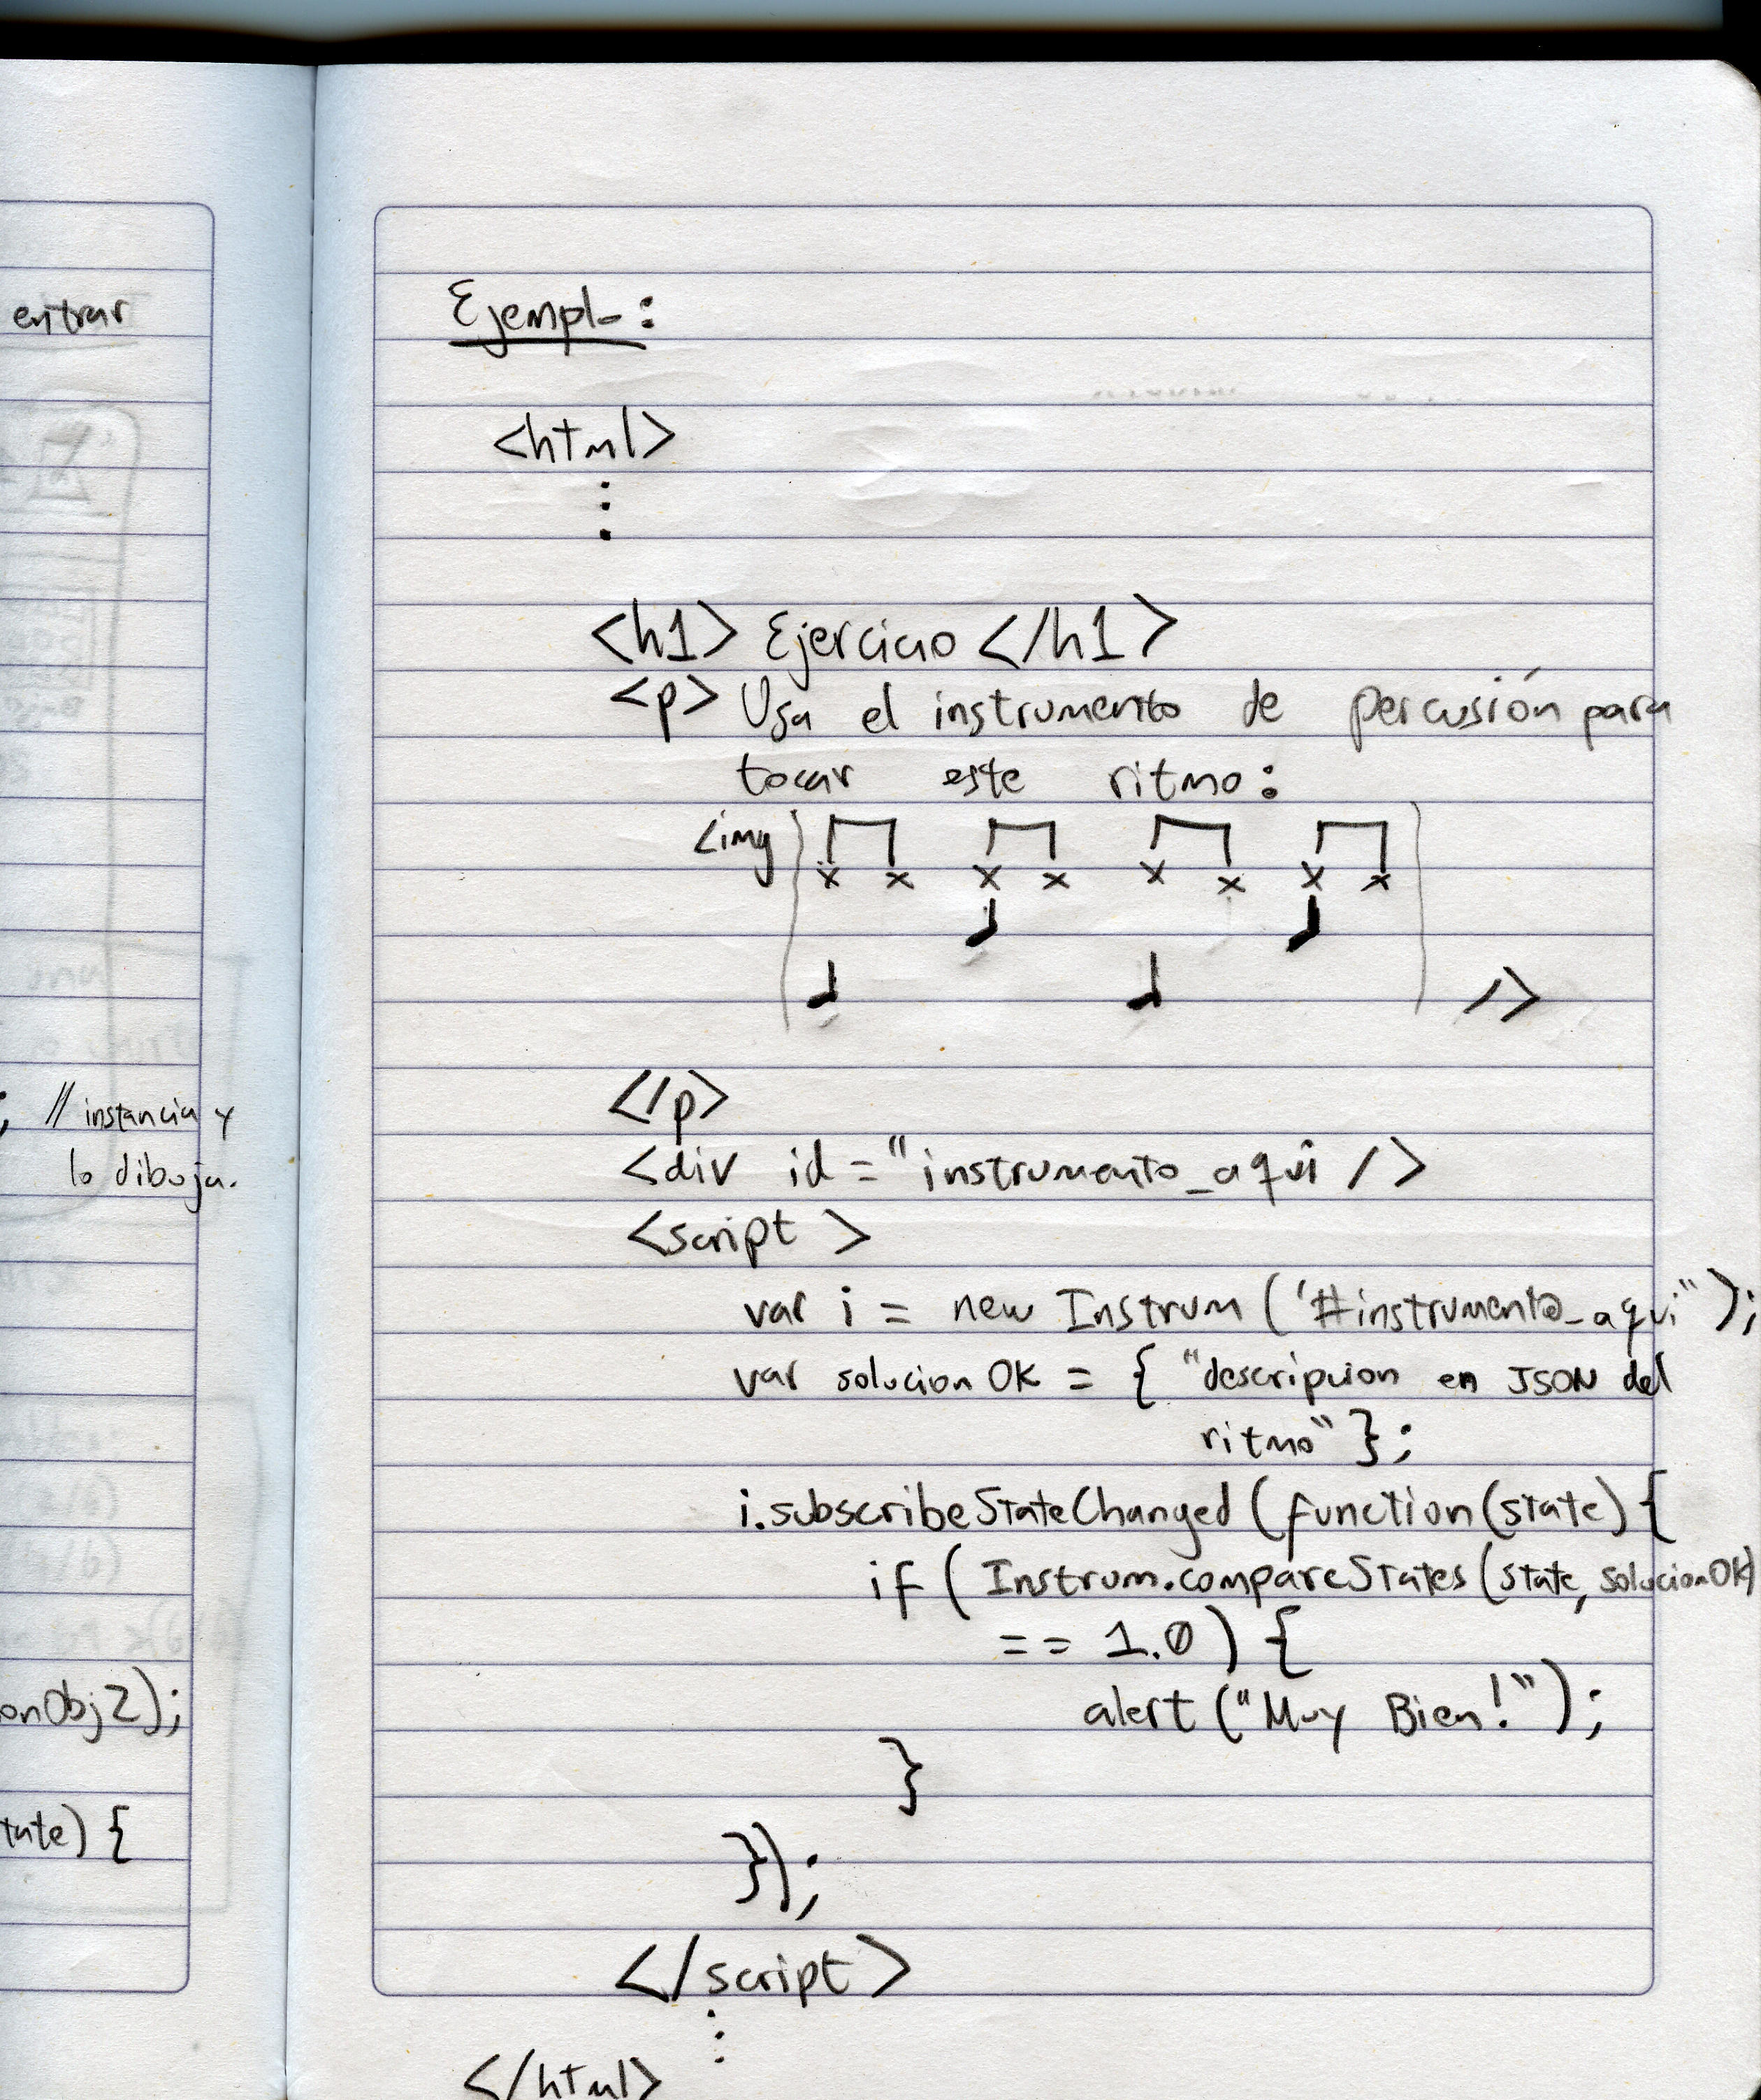 entrar
// instancia y
lo dibuja.
onObj2);
tate) {
Ejemplo:
<html>
<h1> Ejercicio </h1>
<p> Usa el instrumento de percusión para
tocar este ritmo:
<img
/>
</p>
<div id="instrumento_aqui />
<script>
var i = new Instrum ('#instrumento_aqui");
var solucionOK = { "descripcion en JSON del
ritmo" };
i.subscribeStateChanged (function(state) {
if ( Instrum.compareStates (state, solucionOK)
== 1.0 ) {
alert ("Muy Bien!");
}
});
</script>
</html>